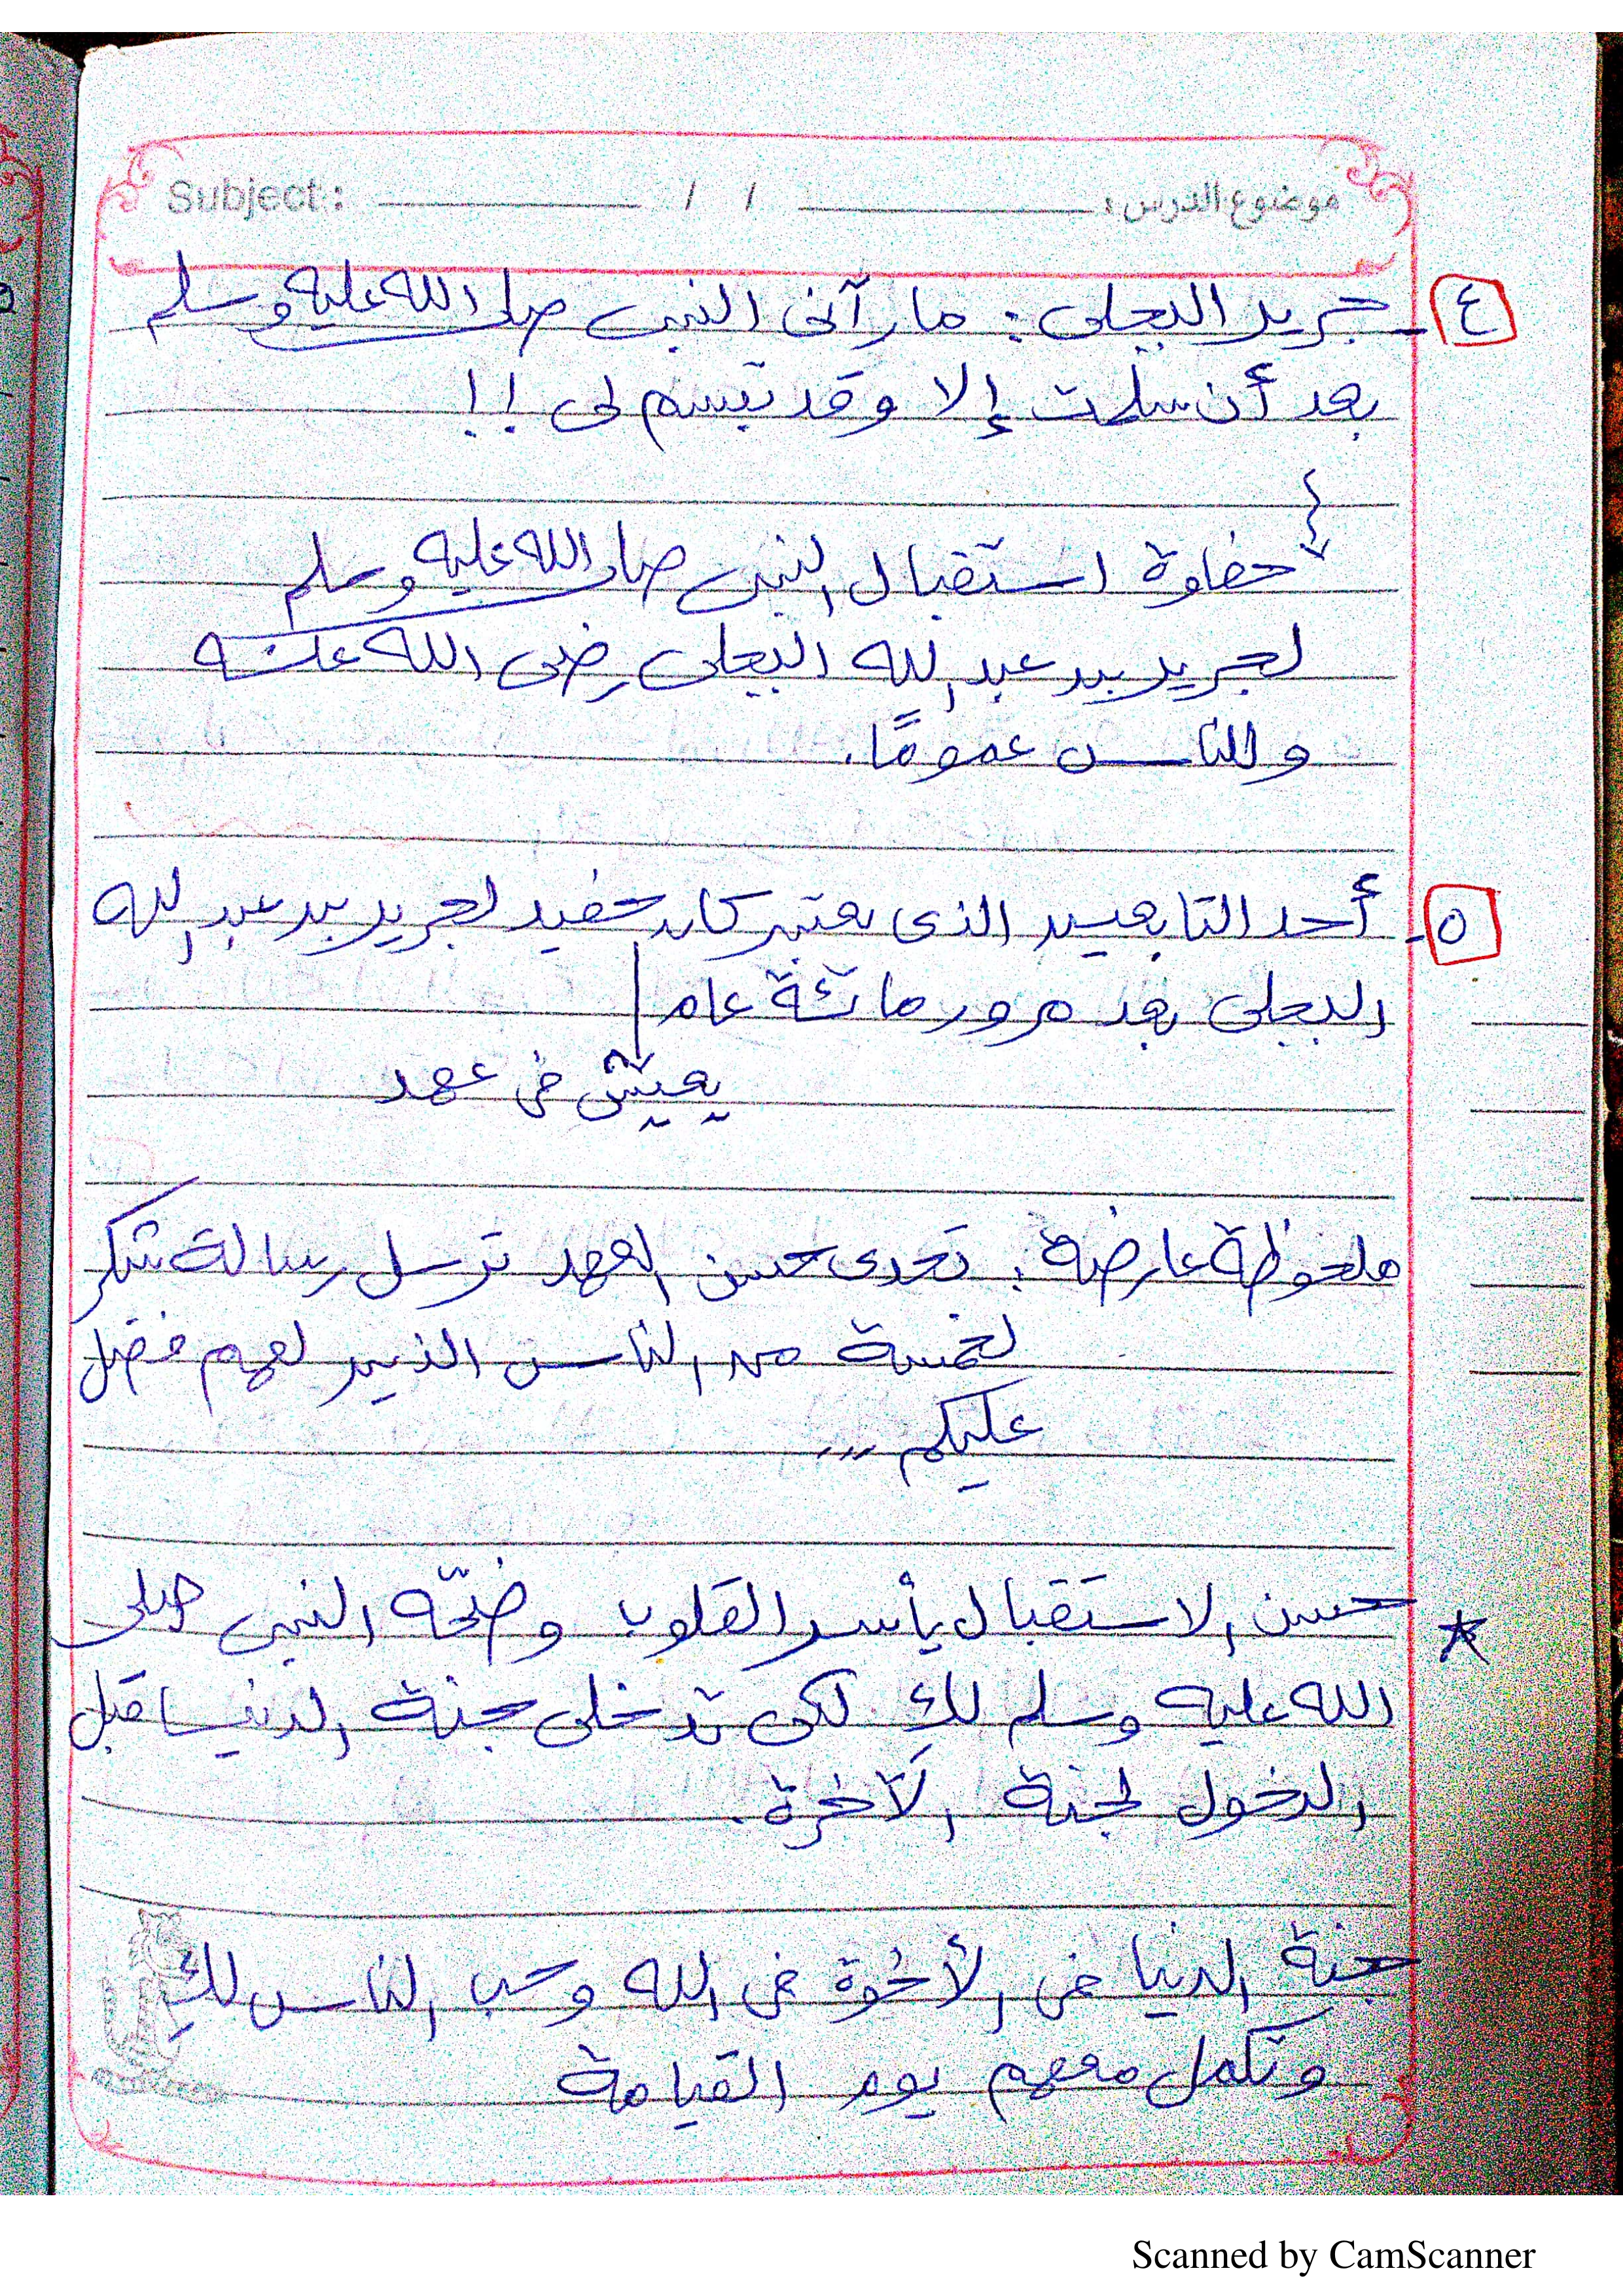 Subject: / / موضوع الدرس:
٤- جرير البجلى: ما رآنى النبى صلى الله عليه وسلم
بعد أن سلمت إلا وقد تبسم لى !!
حفاوة استقبال النبى صلى الله عليه وسلم
لجرير بن عبد الله البجلى رضى الله عنه
وللناس عمومًا.
٥- أحد التابعين الذى يعتبر كان حفيد لجرير بن عبد الله
البجلى بعد مرور مائة عام
يعيش فى عهد
ملحوظة عارضة: تحدى حسن العهد ترسل رسالة شكر
لخمسة من الناس الذين لهم فضل
عليكم ،،،
* حسن الاستقبال يأسر القلوب وضّحه النبى صلى
الله عليه وسلم لكِ لكى تدخلى جنة الدنيا قبل
الدخول لجنة الآخرة.
جنة الدنيا فى الأخوة فى الله وحب الناس لكِ
وتكمل معهم يوم القيامة
Scanned by CamScanner